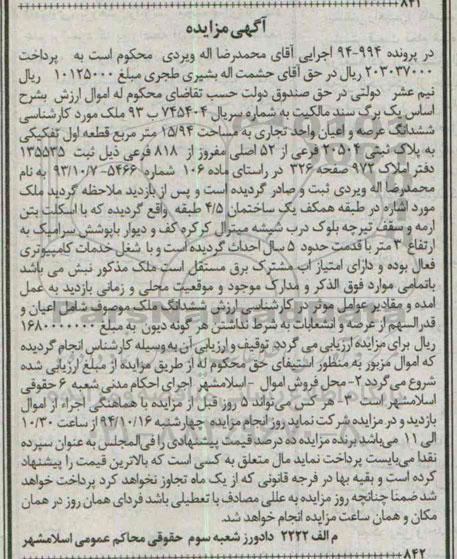 ۸۴۱
آگهی مزایده
در پرونده ۹۹۴-۹۴ اجرایی آقای محمدرضا اله ویردی محکوم است به پرداخت
۲۰۳۰۳۷۰۰۰ ریال در حق آقای حشمت اله بشیری طجری مبلغ ۱۰۱۲۵۰۰۰ ریال
نیم عشر دولتی در حق صندوق دولت حسب تقاضای محکوم له اموال ارزش بشرح
اساس یک برگ سند مالکیت به شماره سریال ۷۴۵۴۰۴ ب ۹۳ ملک مورد کارشناسی
ششدانگ عرصه و اعیان واحد تجاری به مساحت ۱۵/۹۴ متر مربع قطعه اول تفکیکی
به پلاک ثبتی ۲۰۵۰۴ فرعی از ۵۲ اصلی مفروز از ۸۱۸ فرعی ذیل ثبت ۱۳۵۵۳۵
دفتر املاک ۹۷۳ صفحه ۳۲۶ در راستای ماده ۱۰۶ شماره ۵۴۶۶-۹۳/۱۰/۷ به نام
محمدرضا اله ویردی ثبت و صادر گردیده است و پس از بازدید ملاحظه گردید ملک
مورد اشاره در طبقه همکف یک ساختمان ۴/۵ طبقه واقع گردیده که با اسکلت بتن
ارمه و سقف تیرچه بلوک درب شیشه میترال کرکره کف و دیوار باپوشش سرامیک به
ارتفاع ۳ متر با قدمت حدود ۵ سال احداث گردیده است و با شغل خدمات کامپیوتری
فعال بوده و دارای امتیاز اب مشترک برق مستقل است ملک مذکور نبش می باشد
باتمامی موارد فوق الذکر و مدارک موجود و موقعیت محلی و زمانی بازدید به عمل
امده و مقادیر عوامل موثر در کارشناسی ارزش ششدانگ ملک موصوف شامل اعیان و
قدرالسهم از عرصه و انشعابات به شرط نداشتن هر گونه دیون به مبلغ ۱۶۸۰۰۰۰۰۰۰
ریال برای مزایده ارزیابی می گردد. توقیف و ارزیابی آن به وسیله کارشناس انجام گردیده
که اموال مزبور به منظور استیفای حق محکوم له از طریق مزایده از مبلغ ارزیابی شده
شروع می گردد ۲- محل فروش اموال - اسلامشهر اجرای احکام مدنی شعبه ۶ حقوقی
اسلامشهر است ۳- هر کس می تواند ۵ روز قبل از مزایده با هماهنگی اجراء از اموال
بازدید و در مزایده شرکت نماید روز انجام مزایده چهارشنبه ۹۴/۱۰/۱۶ از ساعت ۱۰/۳۰
الی ۱۱ می باشد برنده مزایده ده درصد قیمت پیشنهادی را فی المجلس به عنوان سپرده
نقدا می بایست پرداخت نماید مال متعلق به کسی است که بالاترین قیمت را پیشنهاد
کرده است و بقیه بها در فرجه قانونی که از یک ماه تجاوز نخواهد کرد پرداخت خواهد
شد ضمنا چنانچه روز مزایده به عللی مصادف با تعطیلی باشد فردای همان روز در همان
مکان و همان ساعت مزایده انجام خواهد شد.
م الف ۲۲۲۲ دادورز شعبه سوم حقوقی محاکم عمومی اسلامشهر
۸۴۲